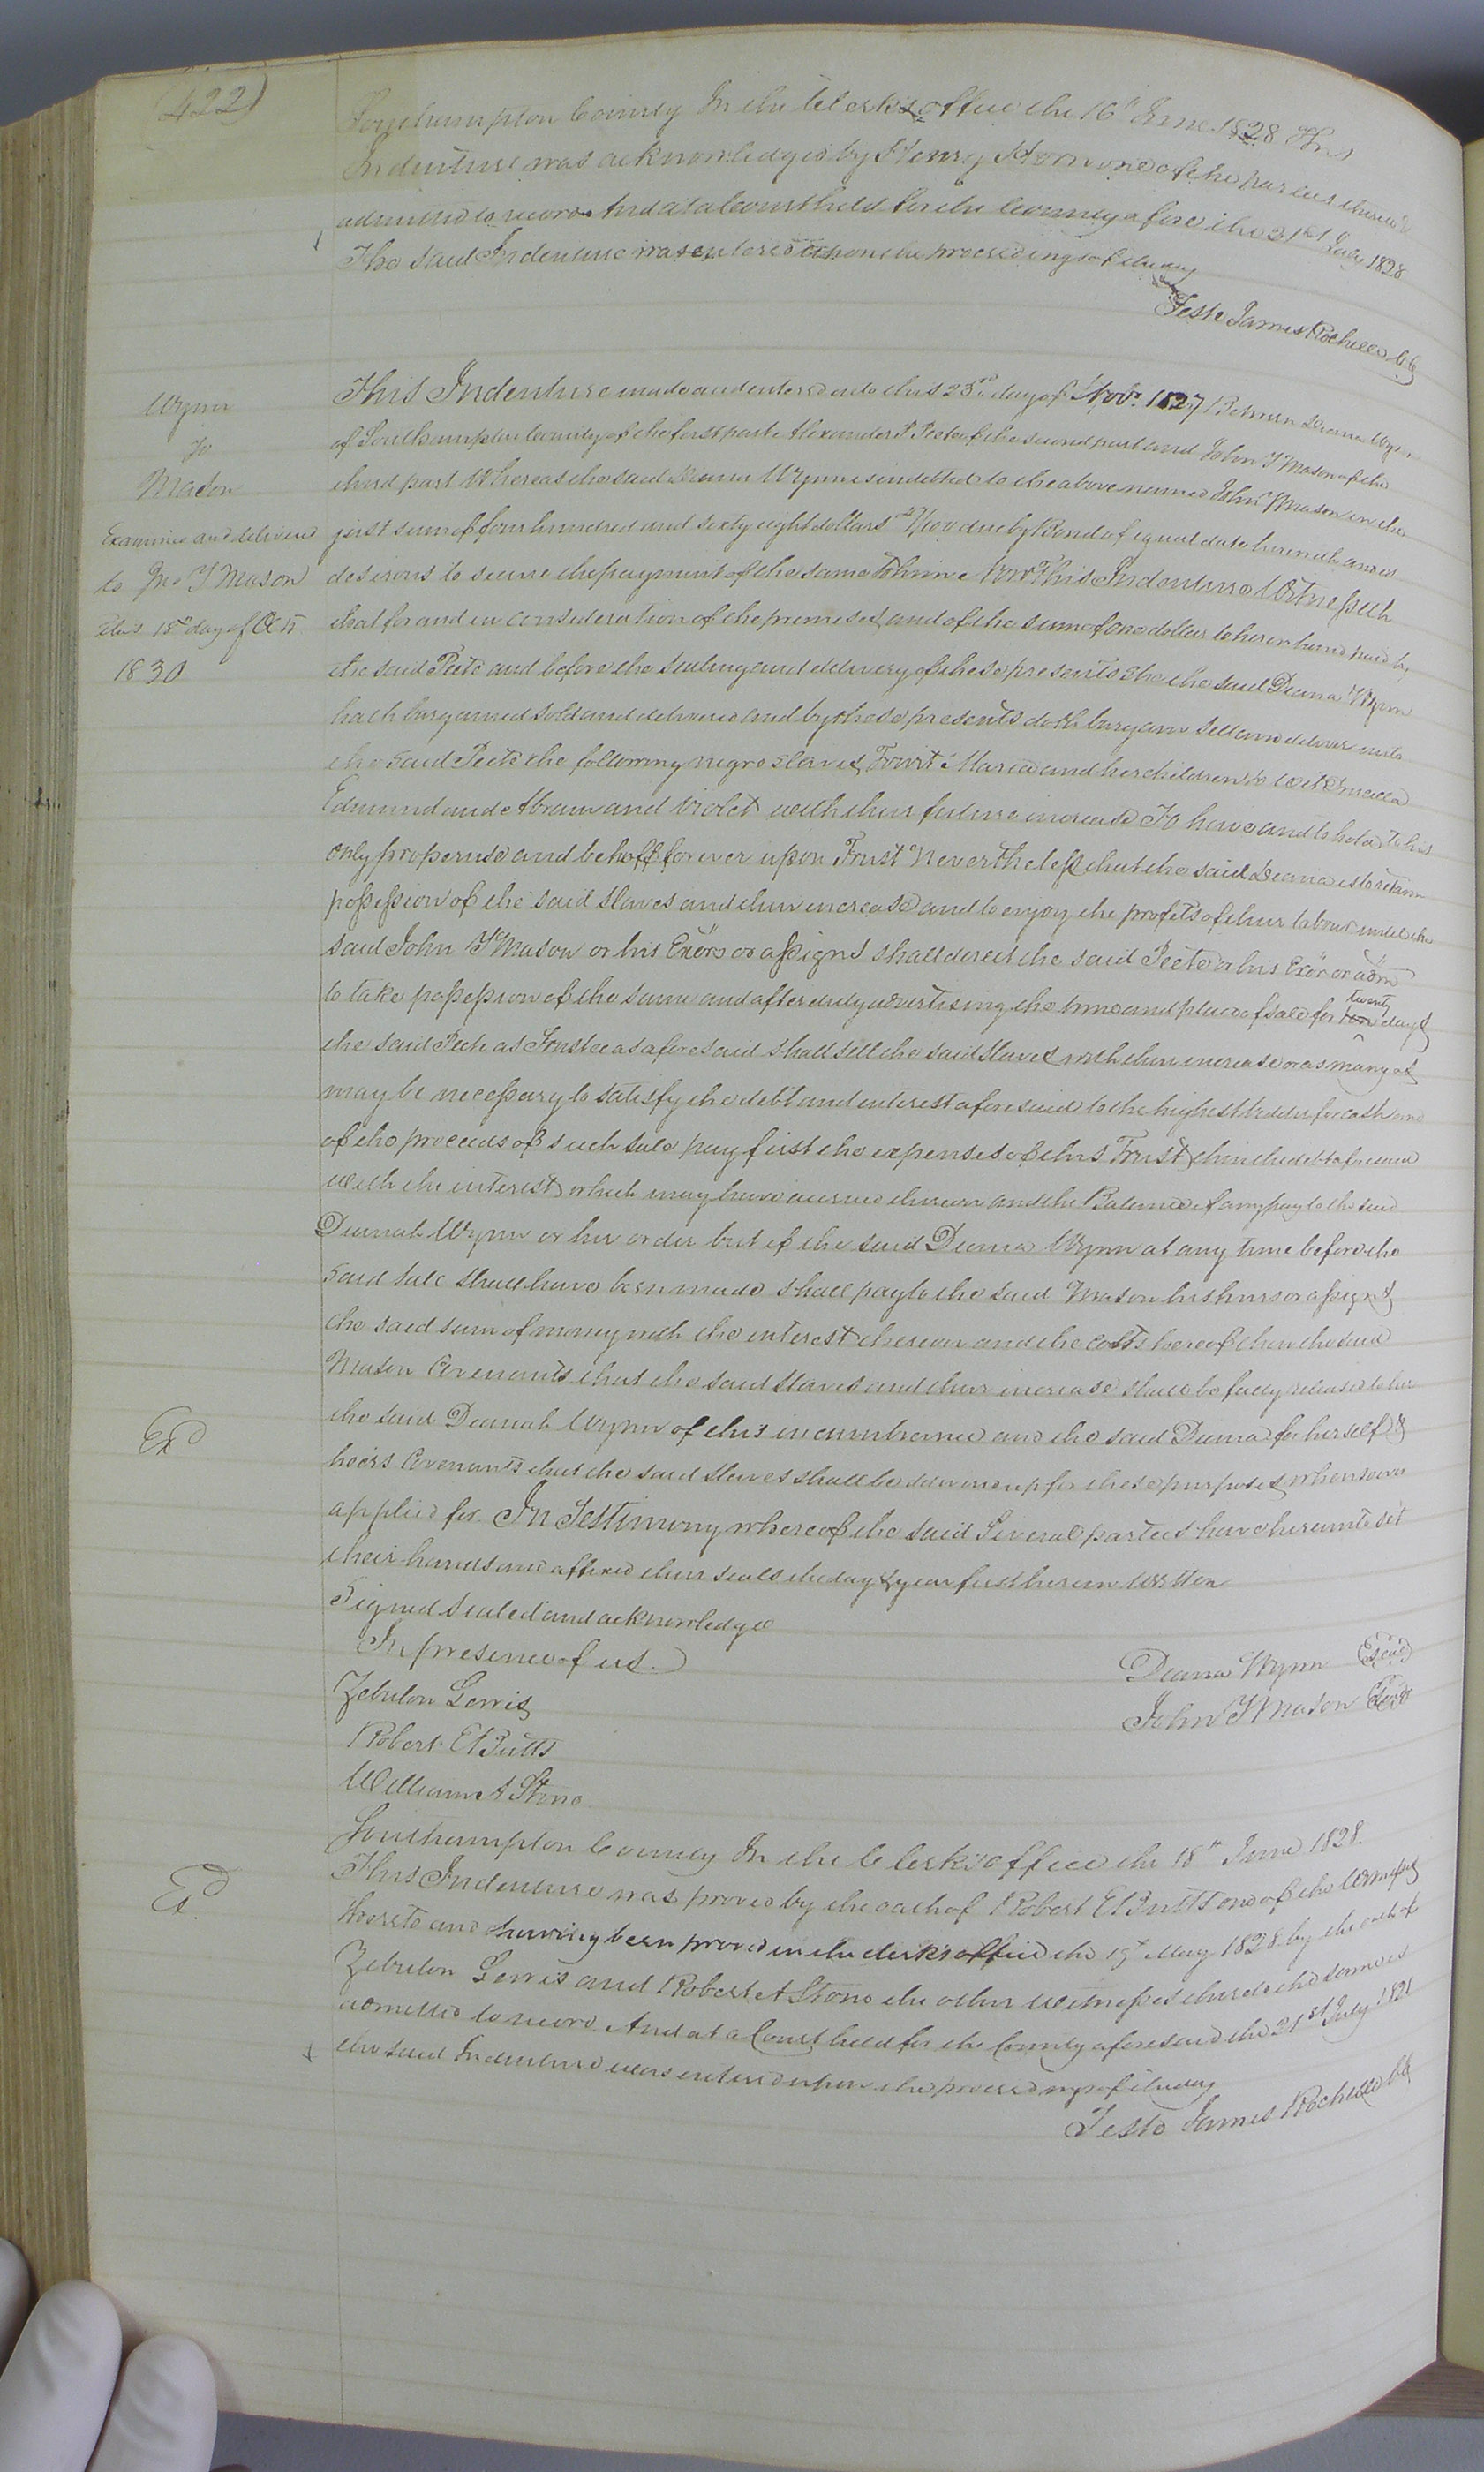 (422)
Southampton County In the Clerk's office the 16th June 1828 This
Indenture was acknowledged by Henry one of the parties thereto &
admitted to record And at a Court held for the County afore the 21st July 1828
The said Indenture was entered upon the proceedings of the day
Teste James Rochelle CC
Wynn
To
Mason
Examined and delivered
to Jno Y Mason
this 18th day of Octr
1830
This Indenture made and entered into this 23rd day of Novr. 1827 Between Deana Wynn
of Southampton County of the first part Alexander P Peete of the second part and John Y Mason of the
third part Whereas the said Deana Wynn is indebted to the above named John Y Mason in the
just sum of four hundred and sixty eight dollars /100 due by Bond of equal date herewith and is
desirous to secure the payment of the same to him Now This Indenture Witnesseth
that for and in consideration of the premises and of the sum of one dollar to her in hand paid by
the said Peete and before the sealing and delivery of these presents she the said Deana Wynn
hath bargained sold and delivered and by these presents doth bargain sell and deliver unto
the said Peete the following negro slaves, Towit Maria and her children to wit
Edmund and Abram and Violet with their future increase To have and to hold to his
only proper use and behoff forever upon Trust Nevertheless that the said Deana is to retain
possession of the said slaves and their increase and to enjoy the profits of their labour until the
said John Y Mason or his Exors or assigns shall direct the said Peete or his Exor or adm
to take possession of the same and after duly advertising the time and place of sale for ten twenty days
the said Peete as Trustee as aforesaid shall sell the said slaves with their increase or as many as
may be necessary to satisfy the debt and interest aforesaid to the highest bidder for cash and
of the proceeds of such sale pay first the expenses of this Trust then the debt aforesaid
with the interest which may have accrued thereon and the Balance if any pay to the said
Deanah Wynn or her order but if the said Deana Wynn at any time before the
said sale shall have been made shall pay to the said Mason his heirs or assigns
the said sum of money with the interest thereon and the costs hereof then the said
Mason Covenants that the said slaves and their increase shall be fully released to her
Exd
the said Deanah Wynn of this incumbrance and the said Deana for herself &
heirs Covenants that the said slaves shall be delivered up for these purposes whensoever
applied for In Testimony whereof the said several parties have hereunto set
their hands and affixed their seals the day & year first herein written
Signed sealed and acknowledged
In presence of us.
Deana Wynn (Seal)
Zebulon Lewis
John Y Mason (Seal)
Robert E Butts
William A Stone
Southampton County In the Clerk's office the 18th June 1828.
This Indenture was proved by the oath of Robert E Butts one of the Witnesses
Exd.
thereto and having been proved in the clerk's office the 19th May 1828 by the oath of
Zebulon Lewis and Robert A Stone the other witnesses thereto the same is
admitted to record. And at a Court held for the County aforesaid the 21st July 1828
the said Indenture was entered upon the proceedings of the day
Teste James Rochelle CC